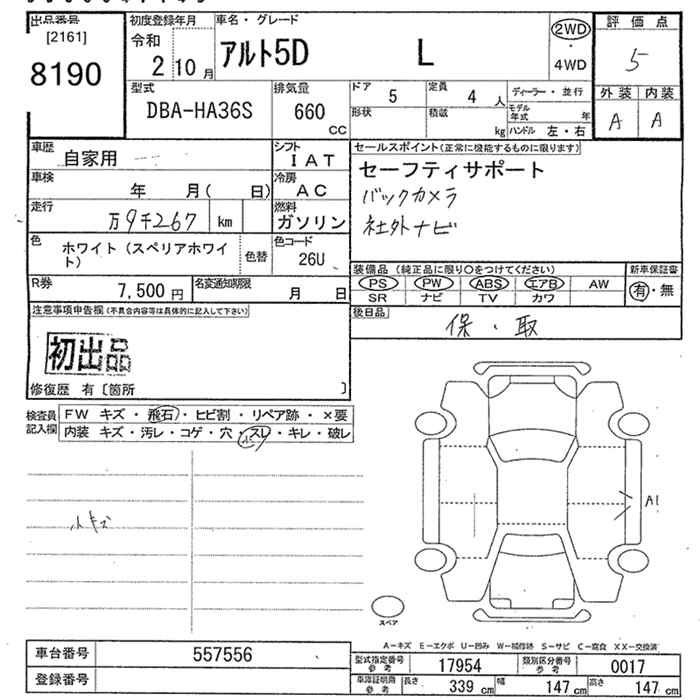 出品番号 初度登録年月 車名・グレード 評価点
[2161] 令和 アルト5D L 2WD 5
8190 2 10月 ・
4WD
型式 排気量 ドア 5 定員 4人 ディーラー・並行 外装 内装
DBA-HA36S 660 CC 形状 積載 kg モデル年式 年 A A
ハンドル 左・右
車歴 自家用 シフト IAT セールスポイント(正常に機能するものに限ります)
車検 年 月( 日) 冷房 AC セーフティサポート
走行 万9千267 km 燃料 ガソリン バックカメラ
社外ナビ
色 ホワイト(スペリアホワイト) 色替 色コード 26U
装備品(純正品に限り○をつけてください) 新車保証書
R券 7,500円 名変通知期限 月 日 PS PW ABS エアB AW 有・無
SR ナビ TV カワ
注意事項申告欄(不具合内容等は具体的に記入して下さい) 後日品 保・取
初出品
修復歴 有〔箇所 〕
検査員記入欄 FW キズ・飛石・ヒビ割・リペア跡・×要
内装 キズ・汚レ・コゲ・穴・スレ・キレ・破レ
小キズ A1
スペア
A−キズ E−エクボ U−凹み W−補修跡 S−サビ C−腐食 XX−交換済
車台番号 557556 型式指定番号 参考 17954 類別区分番号 参考 0017
登録番号 車庫証明費 参考 長さ 339 cm 幅 147 cm 高さ 147 cm